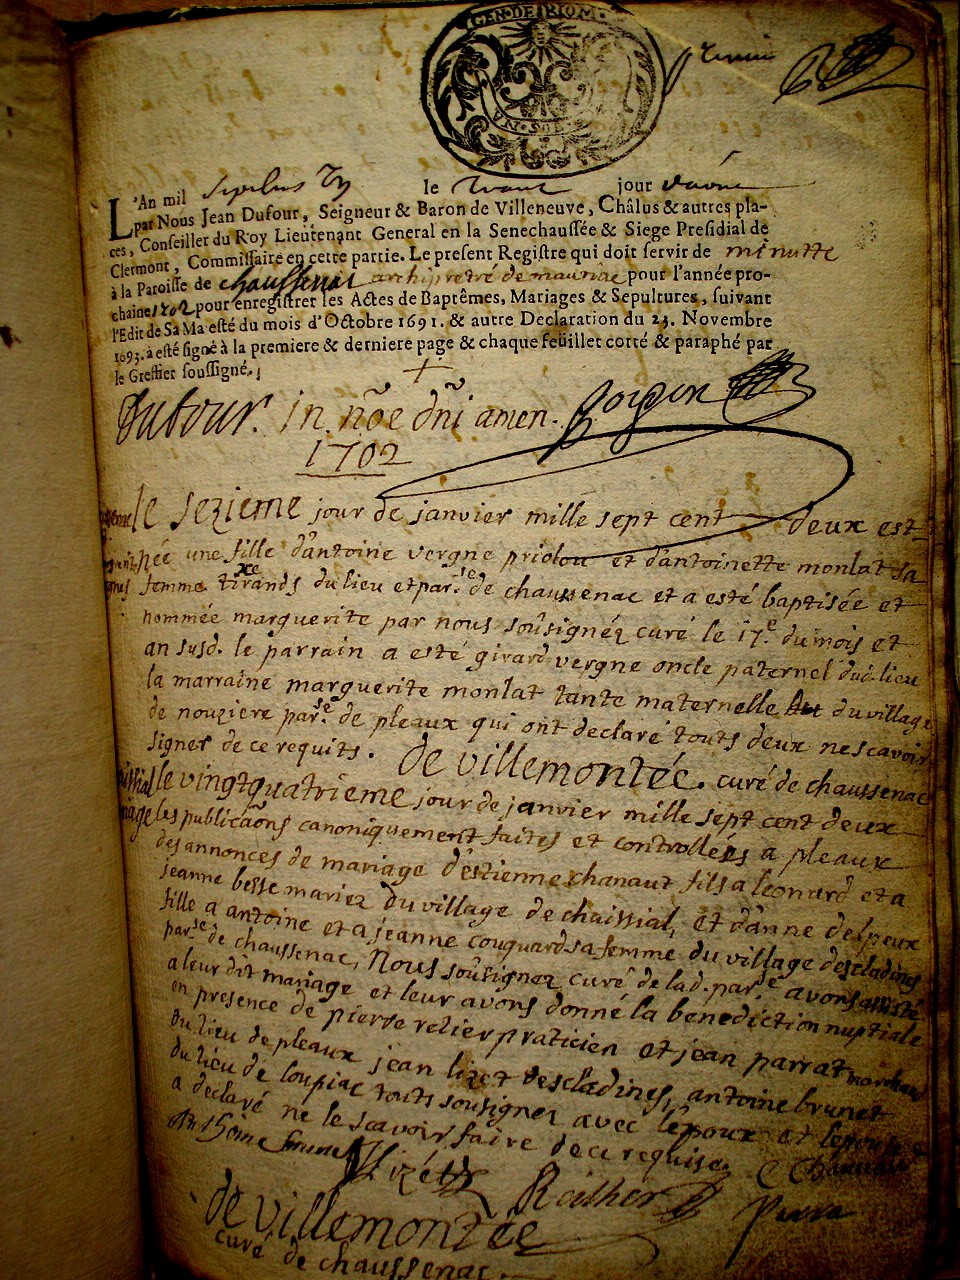 GEN·DE·RIOM·
VN·SOL
premier
L'An mil sept cens le jour
par Nous Jean Dufour, Seigneur & Baron de Villeneuve, Châlus & autres pla-
ces, Conseiller du Roy Lieutenant General en la Senechaussée & Siege Presidial de
Clermont, Commissaire en cette partie. Le present Registre qui doit servir de minutte
à la Paroisse de chaussenac archipretré de mauriac pour l'année pro-
chaine 1702 pour enregistrer les Actes de Baptêmes, Mariages & Sepultures, suivant
l'Edit de Sa Majesté du mois d'Octobre 1691. & autre Declaration du 23. Novembre
1693. a esté signé à la premiere & derniere page & chaque feüillet cotté & paraphé par
le Greffier soussigné.
Dufour. in nõe dñi amen.
1702
le sezieme jour de janvier mille sept cent deux est
née une fille d'antoine vergne priolou et d'antoinette monlat sa
femme tirands du lieu et par.se de chaussenac et a esté baptisée et
nommée marguerite par nous soûsignéz curé le 17.e du mois et
an susd. le parrain a esté girard vergne oncle paternel dud. lieu
la marraine marguerite monlat tante maternelle du village
de nouziere par.se de pleaux qui ont declaré touts deux ne scavoir
signer de ce requits. de villemontée. curé de chaussenac
le vingtquatrieme jour de janvier mille sept cent deux
les publicãons canoniquement faites et controllées a pleaux
des annonces de mariage d'estienne chanaut fils a leonard et a
jeanne besse mariez du village de chaissial, et d'anne delpeux
fille a antoine et a jeanne couquard sa femme du village descladines
par.se de chaussenac, Nous soûsignez curé de lad. par.se avons assisté
a leur dit mariage et leur avons donné la benediction nuptiale
en presence de pierre relier praticien et jean parrat marchand
du lieu de pleaux jean lizet descladines, antoine brunet
du lieu de loupiac touts sousignez avec l'époux et lepouse
a declaré ne le scavoir faire de ce requise.
Lizét Reilher parra
de villemontée
curé de chaussenac.